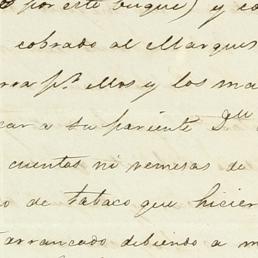 por este buque) y co
cobrado al Marques
pa. ellos y los ma
car a su pariente Dn
cuentas ni remesas de
o de tabaco que hicier
arrancado debiendo a m